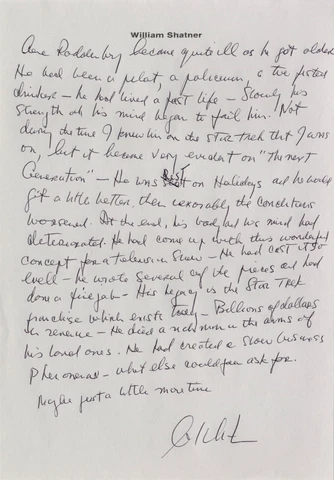 William Shatner
Gene Roddenberry became quite ill as he got older
He had been a pilot, a policeman, a two fisted
drinker – he had lived a fast life – Slowly, his
strength and his mind began to fail him. Not
during the time I knew him on the Star Trek that I was
on, but it became very evident on "The next
Generation" – He was sent on Holidays and he would
get a little better, then inexorably the conditions
worsened. At the end, his body and his mind had
deteriorated. He had come up with this wonderful
concept for a television show – He had cast it so
well – he wrote several of the pieces and had
done a fine job – His legacy is the Star Trek
franchise which exists today – Billions of dollars
in revenue – He died a rich man in the arms of
his loved ones. He had created a show business
phenomena – what else could you ask for.
Maybe just a little more time